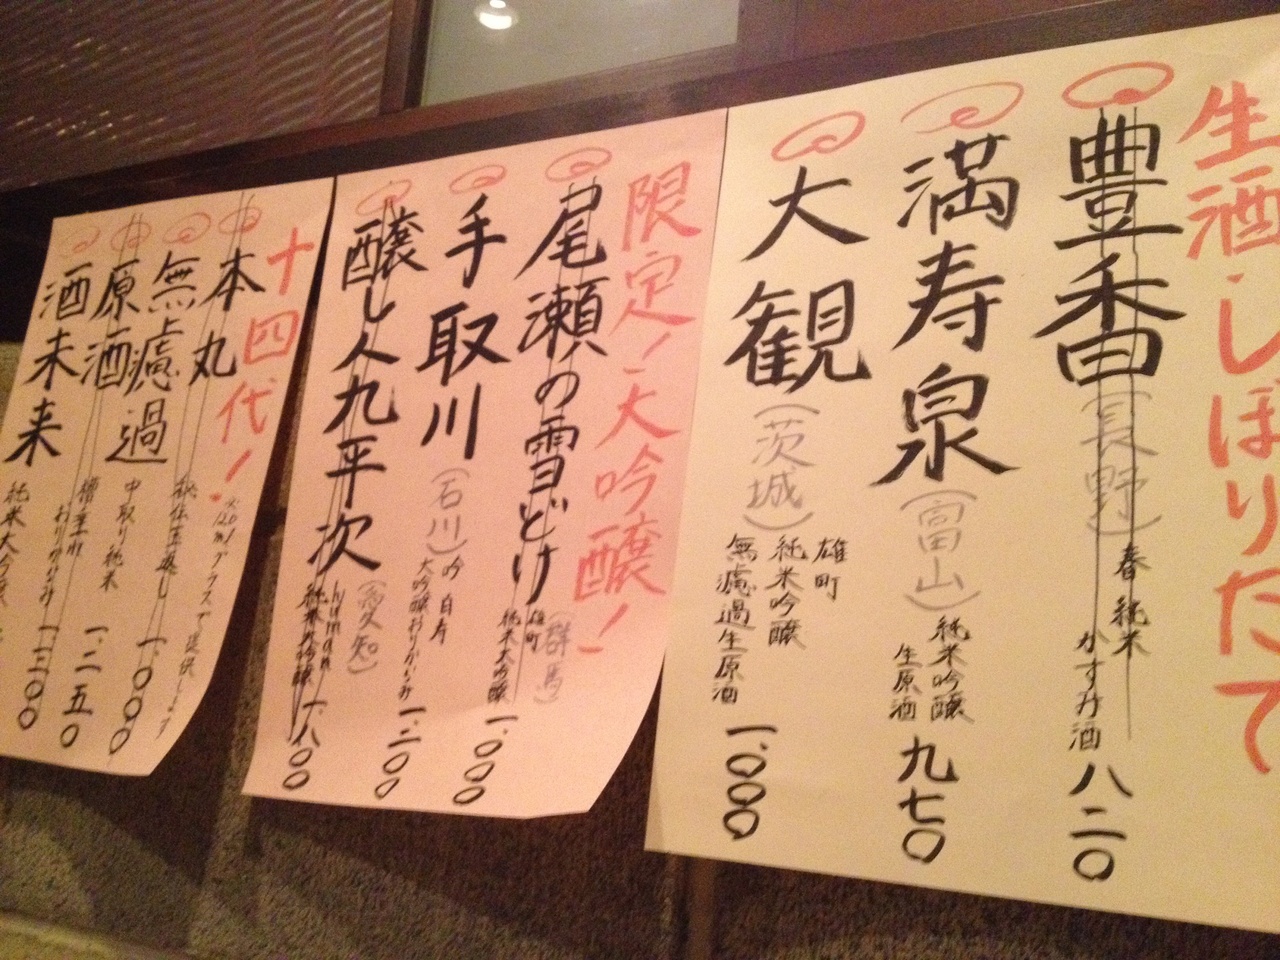 生酒・しぼりたて
豊香
(長野)
春 純米
かすみ酒
八二〇
満寿泉
(富山)
純米吟醸
生原酒
九七〇
大観
(茨城)
雄町
純米吟醸
無濾過生原酒
一、〇〇〇
限定!大吟醸!
尾瀬の雪どけ
(群馬)
雄町
純米大吟醸
一、〇〇〇
手取川
(石川)
吟 白寿
大吟醸おりがらみ
一、二〇〇
醸し人九平次
(愛知)
human
純米大吟醸
一、八〇〇
十四代!
※120mlグラスで提供します
本丸
秘伝玉返し
一、〇〇〇
無濾過
中取り純米
原酒
槽垂れ
おりがらみ
一、二五〇
酒未来
純米大吟醸